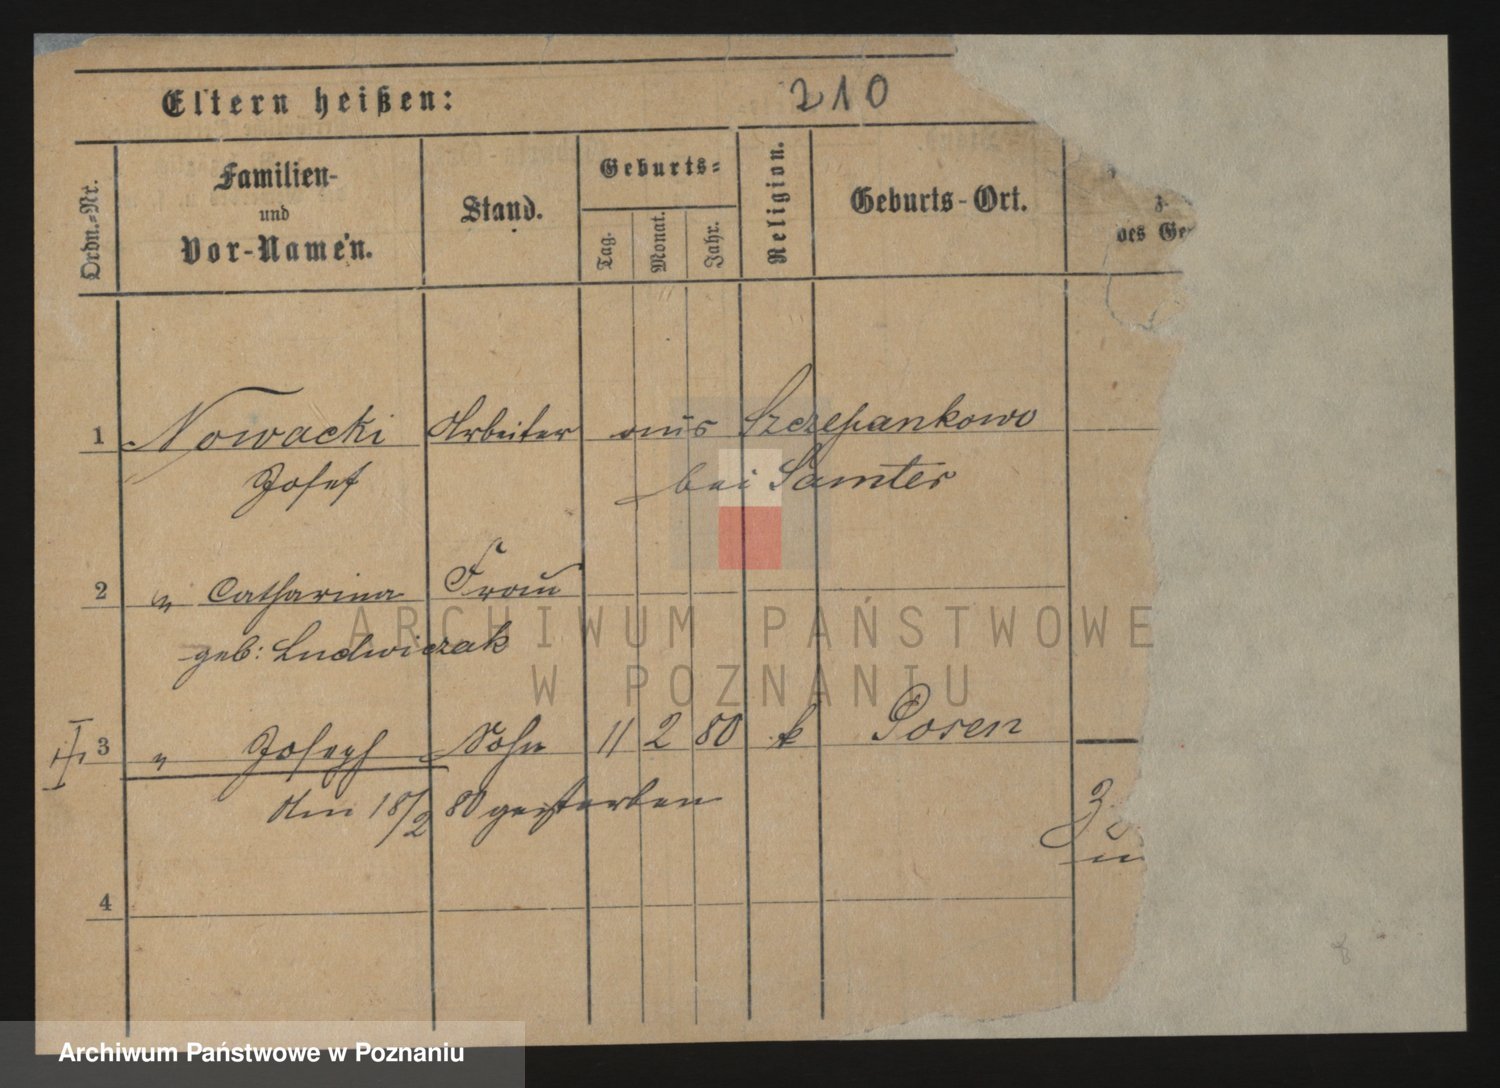 Eltern heißen:
210
Ordn.-Nr.
Familien-
und
Vor-Namen.
Stand.
Geburts-
Tag.
Monat.
Jahr.
Religion.
Geburts-Ort.
des
1 Nowacki Arbeiter aus Szczepankowo
Josef bei Samter
2 " Catharina Frau
geb: Ludwiczak
3 " Joseph Sohn 11 2 80 k Posen
Am 18/2 80 gestorben
4
ARCHIWUM PAŃSTWOWE
W POZNANIU
Archiwum Państwowe w Poznaniu